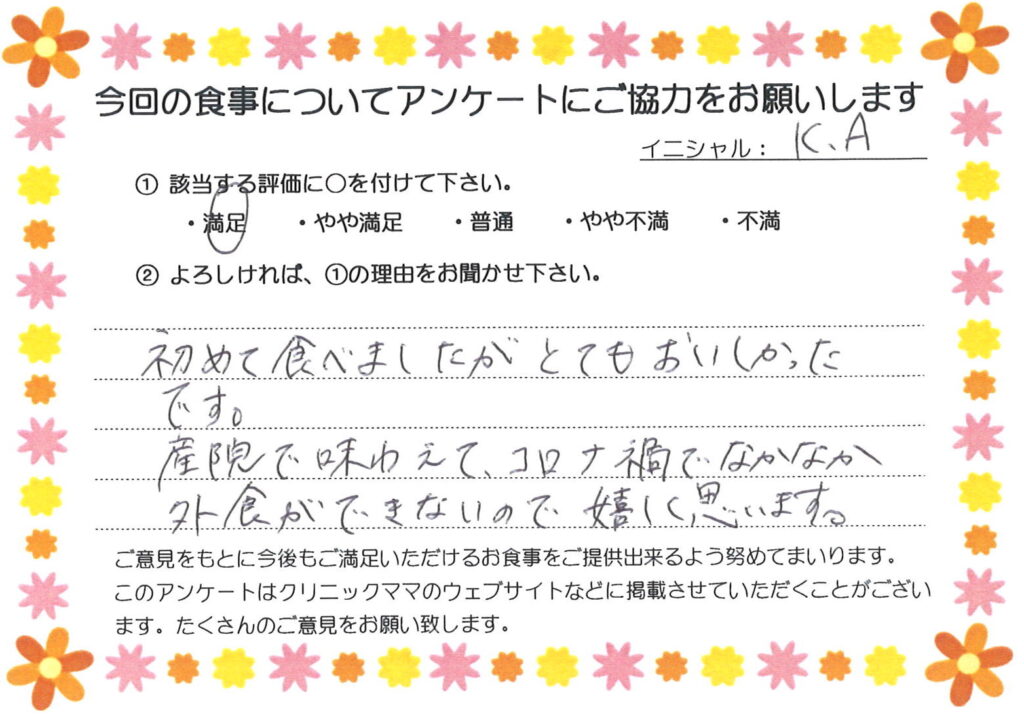 今回の食事についてアンケートにご協力をお願いします
イニシャル： K.A
① 該当する評価に〇を付けて下さい。
・満足 ・やや満足 ・普通 ・やや不満 ・不満
② よろしければ、①の理由をお聞かせ下さい。
初めて食べましたがとてもおいしかった
です。
産院で味わえて、コロナ禍でなかなか
外食ができないので嬉しく思います。
ご意見をもとに今後もご満足いただけるお食事をご提供出来るよう努めてまいります。
このアンケートはクリニックママのウェブサイトなどに掲載させていただくことがござい
ます。たくさんのご意見をお願い致します。